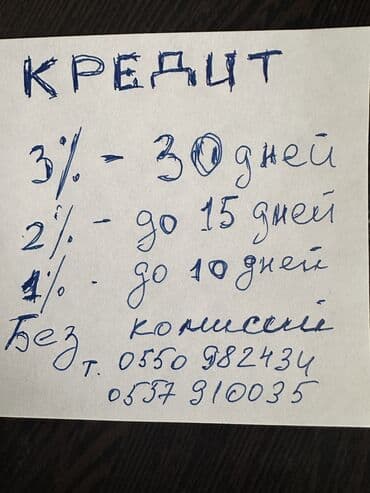 КРЕДИТ
3% - 30 дней
2% - до 15 дней
1% - до 10 дней
Без комисий
т. 0550 982434
0557 910035